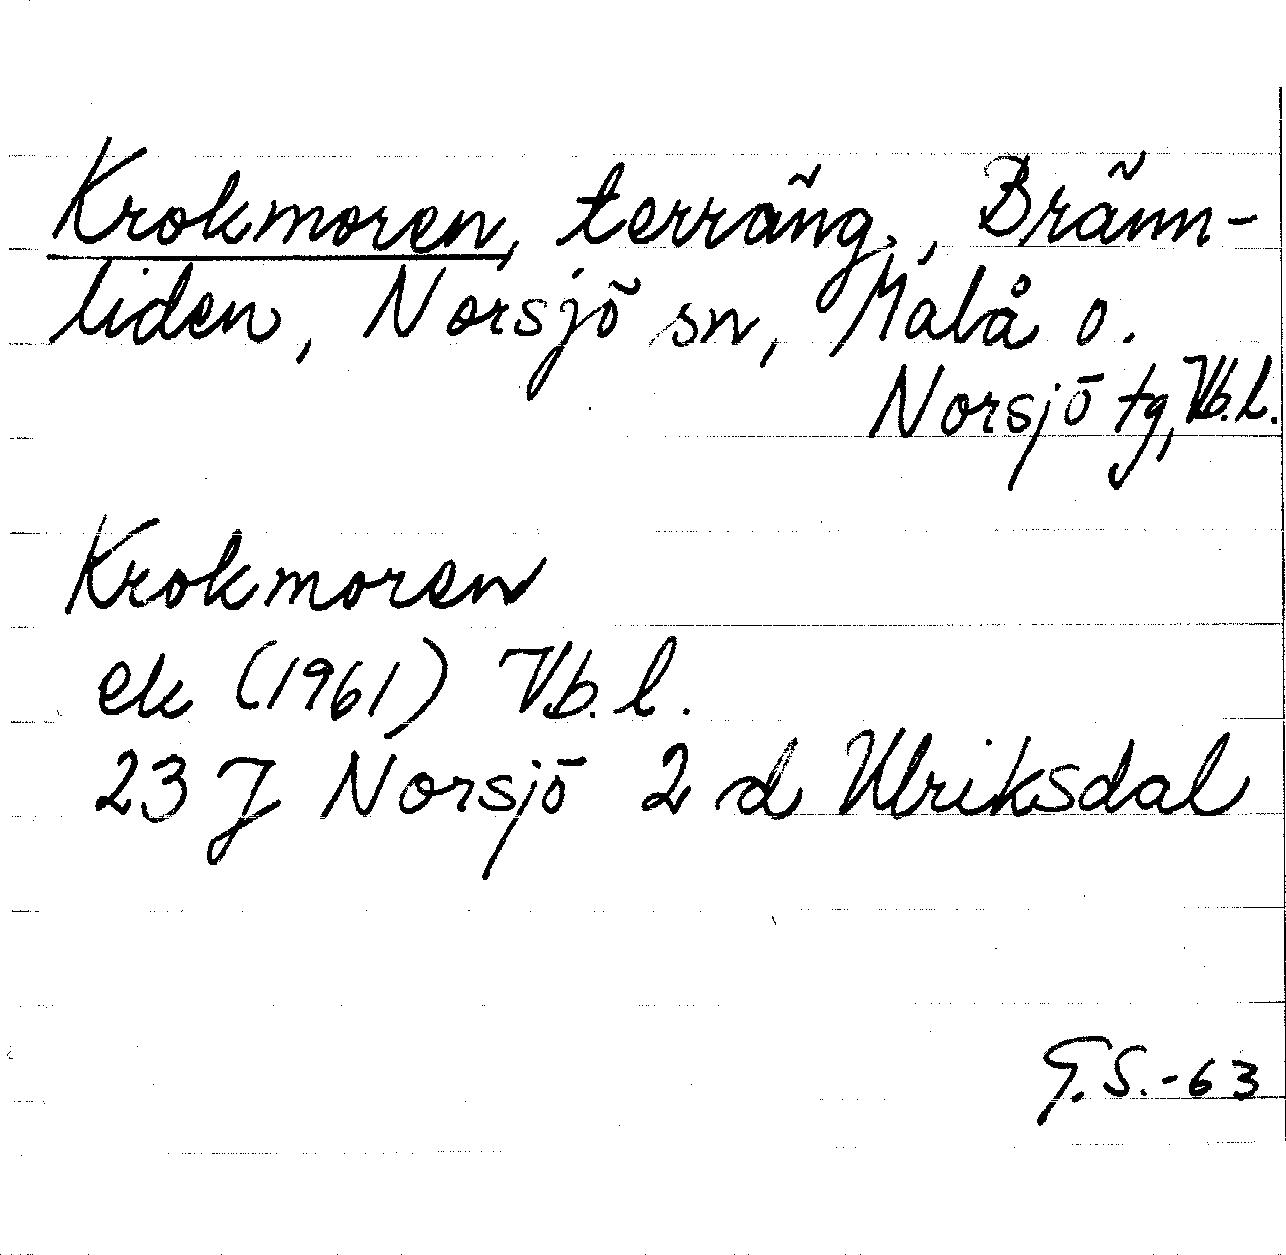 Krokmoren, terräng, Bränn-
liden, Norsjö sn, Malå o.
Norsjö tg, Vb.l.
Krokmoren
ek (1961) Vb.l.
23 J Norsjö 2 d Ulriksdal
G.S.-63